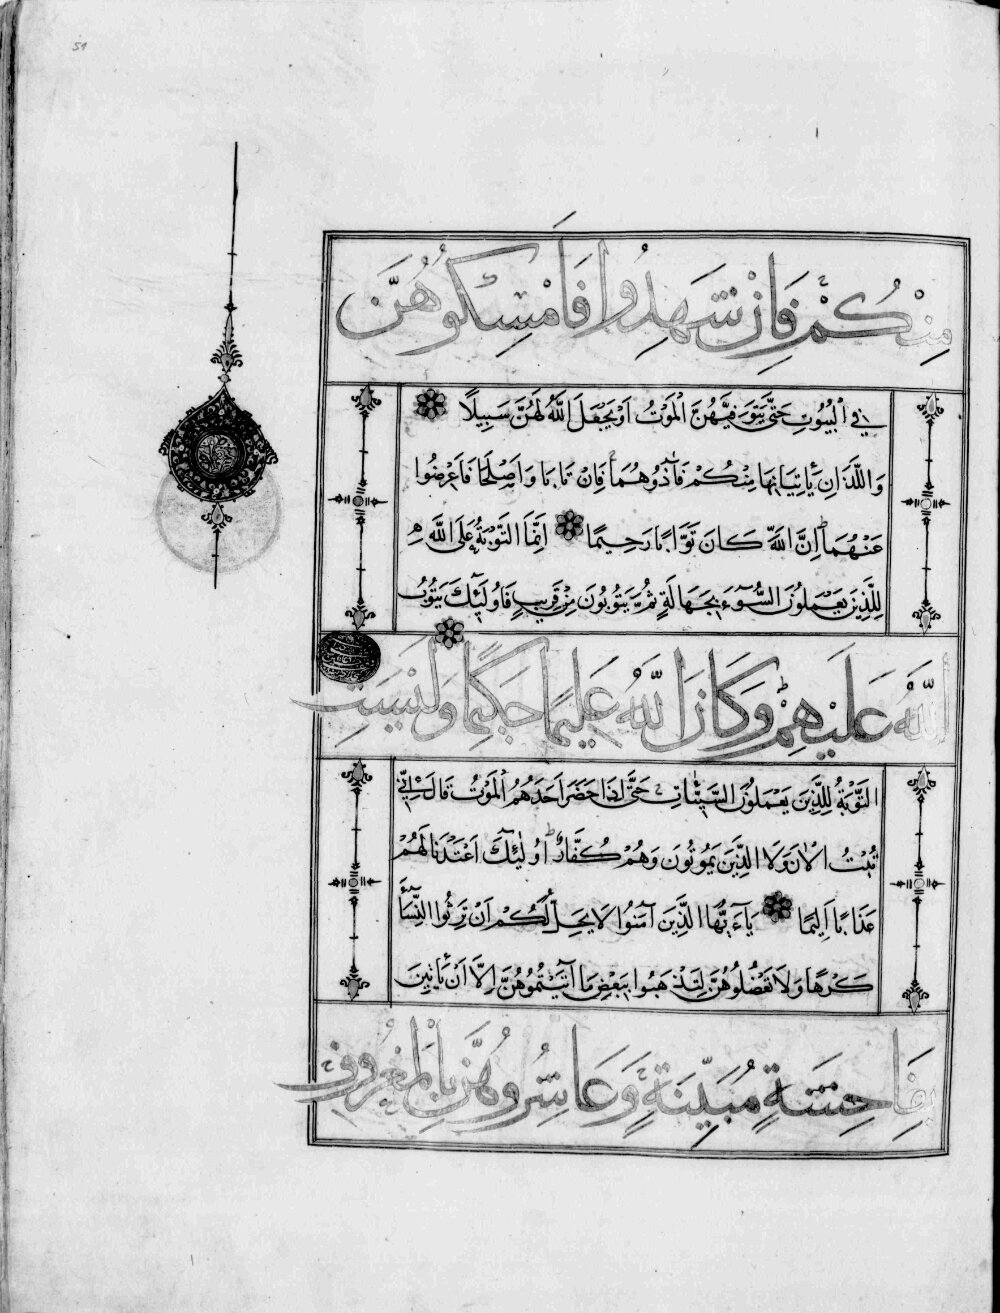 51
مِنْكُمْ فَاِنْ شَهِدُوا فَاَمْسِكُوهُنَّ
فِي الْبُيُوتِ حَتَّى يَتَوَفّٰيهُنَّ الْمَوْتُ اَوْ يَجْعَلَ اللّٰهُ لَهُنَّ سَبِيلًا
وَاللَّذَانِ يَأْتِيَانِهَا مِنْكُمْ فَاٰذُوهُمَا فَاِنْ تَابَا وَاَصْلَحَا فَاَعْرِضُوا
عَنْهُمَا اِنَّ اللّٰهَ كَانَ تَوَّابًا رَحِيمًا اِنَّمَا التَّوْبَةُ عَلَى اللّٰهِ
لِلَّذِينَ يَعْمَلُونَ السُّوٓءَ بِجَهَالَةٍ ثُمَّ يَتُوبُونَ مِنْ قَرِيبٍ فَاُولٰٓئِكَ يَتُوبُ
اللّٰهُ عَلَيْهِمْ وَكَانَ اللّٰهُ عَلِيمًا حَكِيمًا وَلَيْسَتِ
التَّوْبَةُ لِلَّذِينَ يَعْمَلُونَ السَّيِّئَاتِ حَتَّى اِذَا حَضَرَ اَحَدَهُمُ الْمَوْتُ قَالَ اِنِّي
تُبْتُ الْاٰنَ وَلَا الَّذِينَ يَمُوتُونَ وَهُمْ كُفَّارٌ اُولٰٓئِكَ اَعْتَدْنَا لَهُمْ
عَذَابًا اَلِيمًا يَآ اَيُّهَا الَّذِينَ آمَنُوا لَا يَحِلُّ لَكُمْ اَنْ تَرِثُوا النِّسَآءَ
كَرْهًا وَلَا تَعْضُلُوهُنَّ لِتَذْهَبُوا بِبَعْضِ مَا آتَيْتُمُوهُنَّ اِلَّا اَنْ يَأْتِينَ
بِفَاحِشَةٍ مُبَيِّنَةٍ وَعَاشِرُوهُنَّ بِالْمَعْرُوفِ